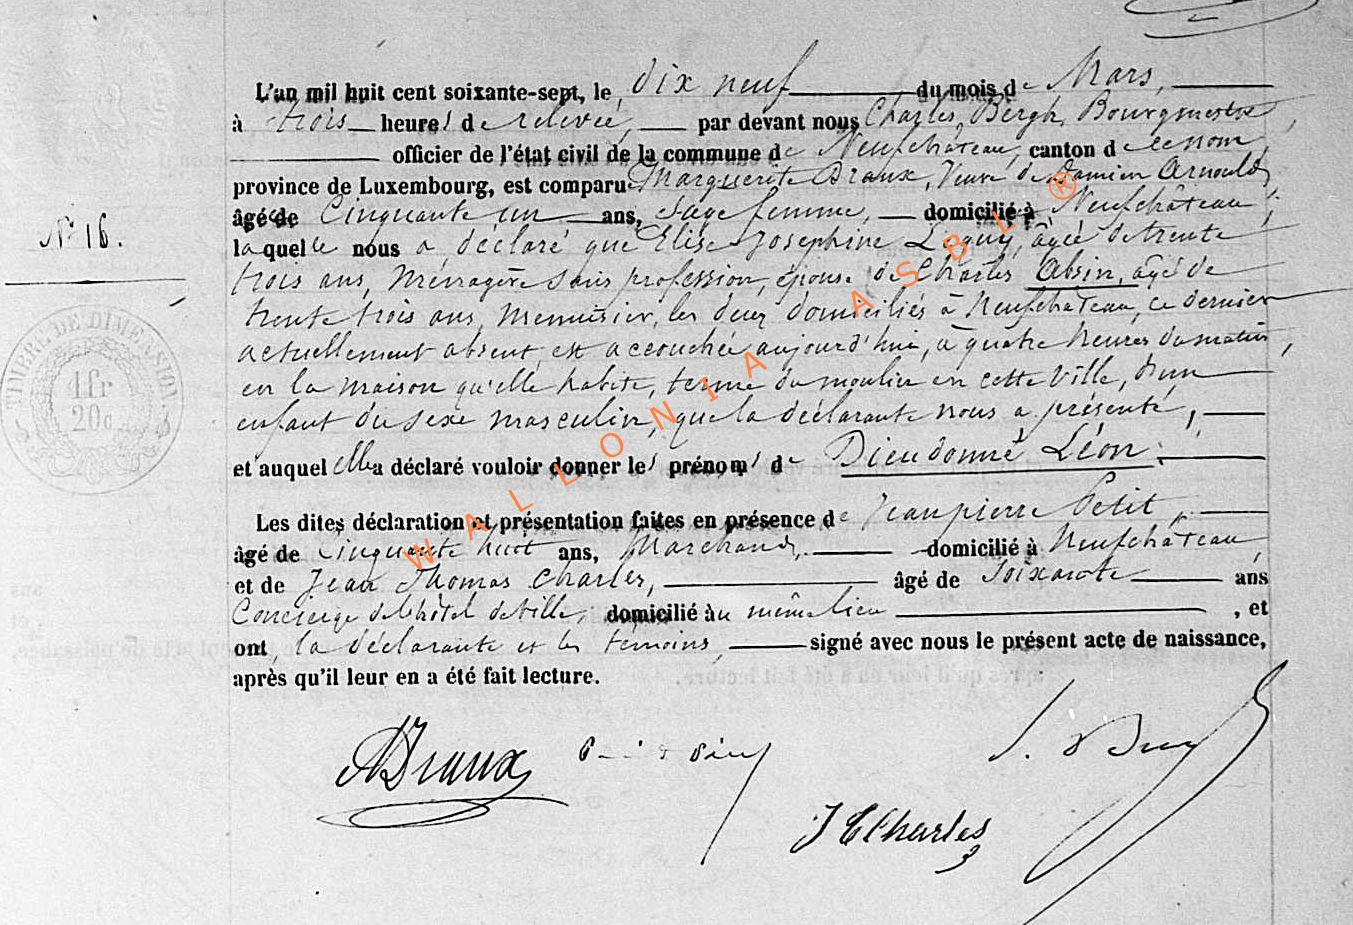 L'an mil huit cent soixante-sept, le dix neuf du mois de Mars,
à trois heures de relevée, par devant nous Charles Bergh, Bourgmestre,
officier de l'état civil de la commune de Neufchâteau, canton de ce nom,
province de Luxembourg, est comparue Marguerite Braux, Veuve de Damien Arnould,
âgée de Cinquante un ans, Sage femme, domicilié à Neufchâteau,
N° 16.
laquelle nous a déclaré que Elise Josephine âgée de trente
trois ans, Ménagère sans profession, épouse de Charles Absin, âgé de
trente trois ans, Menuisier, les deux domiciliés à Neufchâteau, ce dernier
actuellement absent, est accouchée aujourd'hui, à quatre heures du matin,
en la maison qu'elle habite, du moulin en cette Ville, d'un
enfant du sexe masculin, que la déclarante nous a présenté,
et auquel elle a déclaré vouloir donner les prénoms de Dieudonné Léon.
Les dites déclaration et présentation faites en présence de Jean pierre Petit,
âgé de Cinquante huit ans, Marchand, domicilié à Neufchâteau,
et de Jean Thomas Charles, âgé de Soixante ans
Concierge de l'hôtel de Ville, domicilié au même lieu, et
ont, la déclarante et les témoins, signé avec nous le présent acte de naissance,
après qu'il leur en a été fait lecture.
MBraux
J T Charles
TIMBRE DE DIMENSION
1fr
20c
WALLONIA ASBL ®